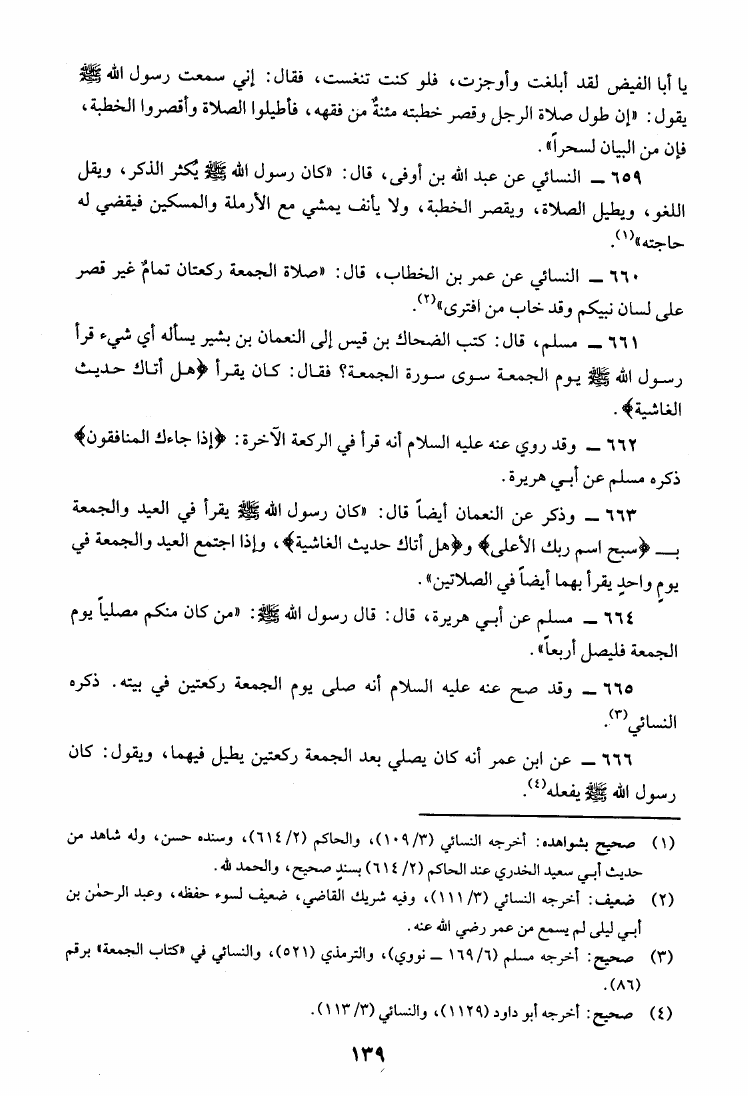 يا أبا الفيض لقد أبلغت وأوجزت، فلو كنت تنغست، فقال: إني سمعت رسول الله ﷺ
يقول: «إن طول صلاة الرجل وقصر خطبته مئنةٌ من فقهه، فأطيلوا الصلاة وأقصروا الخطبة،
فإن من البيان لسحراً».
٦٥٩ ــ النسائي عن عبد الله بن أوفى، قال: «كان رسول الله ﷺ يُكثر الذكر، ويقل
اللغو، ويطيل الصلاة، ويقصر الخطبة، ولا يأنف يمشي مع الأرملة والمسكين فيقضي له
حاجته»(١).
٦٦٠ ــ النسائي عن عمر بن الخطاب، قال: «صلاة الجمعة ركعتان تمامٌ غير قصر
على لسان نبيكم وقد خاب من افترى»(٢).
٦٦١ ــ مسلم، قال: كتب الضحاك بن قيس إلى النعمان بن بشير يسأله أي شيء قرأ
رسول الله ﷺ يوم الجمعة سوى سورة الجمعة؟ فقال: كان يقرأ ﴿هل أتاك حديث
الغاشية﴾.
٦٦٢ ــ وقد روي عنه عليه السلام أنه قرأ في الركعة الآخرة: ﴿إذا جاءك المنافقون﴾
ذكره مسلم عن أبي هريرة.
٦٦٣ ــ وذكر عن النعمان أيضاً قال: «كان رسول الله ﷺ يقرأ في العيد والجمعة
بـ ﴿سبح اسم ربك الأعلى﴾ و﴿هل أتاك حديث الغاشية﴾، وإذا اجتمع العيد والجمعة في
يومٍ واحدٍ يقرأ بهما أيضاً في الصلاتين».
٦٦٤ ــ مسلم عن أبي هريرة، قال: قال رسول الله ﷺ: «من كان منكم مصلياً يوم
الجمعة فليصل أربعاً».
٦٦٥ ــ وقد صح عنه عليه السلام أنه صلى يوم الجمعة ركعتين في بيته. ذكره
النسائي(٣).
٦٦٦ ــ عن ابن عمر أنه كان يصلي بعد الجمعة ركعتين يطيل فيهما، ويقول: كان
رسول الله ﷺ يفعله(٤).
(١) صحيح بشواهده: أخرجه النسائي (٣/١٠٩)، والحاكم (٢/٦١٤)، وسنده حسن، وله شاهد من
حديث أبي سعيد الخدري عند الحاكم (٢/٦١٤) بسندٍ صحيح، والحمد لله.
(٢) ضعيف: أخرجه النسائي (٣/١١١)، وفيه شريك القاضي، ضعيف لسوء حفظه، وعبد الرحمٰن بن
أبي ليلى لم يسمع من عمر رضي الله عنه.
(٣) صحيح: أخرجه مسلم (٦/١٦٩ ــ نووي)، والترمذي (٥٢١)، والنسائي في «كتاب الجمعة» برقم
(٨٦).
(٤) صحيح: أخرجه أبو داود (١١٢٩)، والنسائي (٣/١١٣).
١٣٩